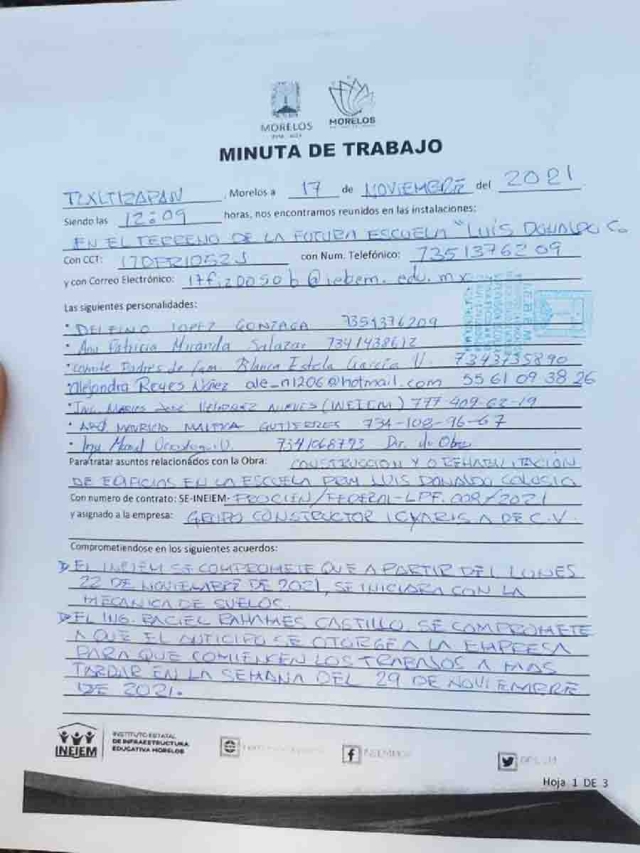 MORELOS
MORELOS
MINUTA DE TRABAJO
TLALTIZAPAN, Morelos a 17 de NOVIEMBRE del 2021
Siendo las 12:09 horas, nos encontramos reunidos en las instalaciones:
EN EL TERRENO DE LA FUTURA ESCUELA "LUIS DONALDO Co
Con CCT: 17DPR1052J con Num. Telefónico: 7351376209
y con Correo Electrónico: @iebem.edu.mx
Las siguientes personalidades:
• DELFINO LOPEZ GONZAGA 7351376209
• Ana Patricia Miranda Salazar 7341438612
• Comite Padres de Fam. Blanca Estela García V. 7343735890
Alejandra Reyes Núñez ale_n1206@hotmail.com 55 61 09 38 26
• ING. JOSE (INEIEM) 777-409-62-19
• MAURICIO GUTIERRES 734-108-96-67
• Ing 7341068793 Dir. de Obra
Para tratar asuntos relacionados con la Obra: CONSTRUCCION Y O REHABILITACIÓN
DE EDIFICIOS EN LA ESCUELA PRIM LUIS DONALDO COLOSIO
Con numero de contrato: SE-INEIEM-PROCIEN/FEDERAL-LPF.008/2021
y asignado a la empresa: GRUPO CONSTRUCTOR S A DE C.V.
Comprometiendose en los siguientes acuerdos:
EL INEIEM SE COMPROMETE QUE A PARTIR DEL LUNES
22 DE NOVIEMBRE DE 2021, SE INICIARA CON LA
MECANICA DE SUELOS.
EL ING. CASTILLO, SE COMPROMETE
A QUE EL ANTICIPO SE OTORGE A LA EMPRESA
PARA QUE COMIENCEN LOS TRABAJOS A MAS
TARDAR EN LA SEMANA DEL 29 DE NOVIEMBRE
DE 2021.
INEIEM
INSTITUTO ESTATAL
DE INFRAESTRUCTURA
EDUCATIVA MORELOS
Hoja 1 DE 3